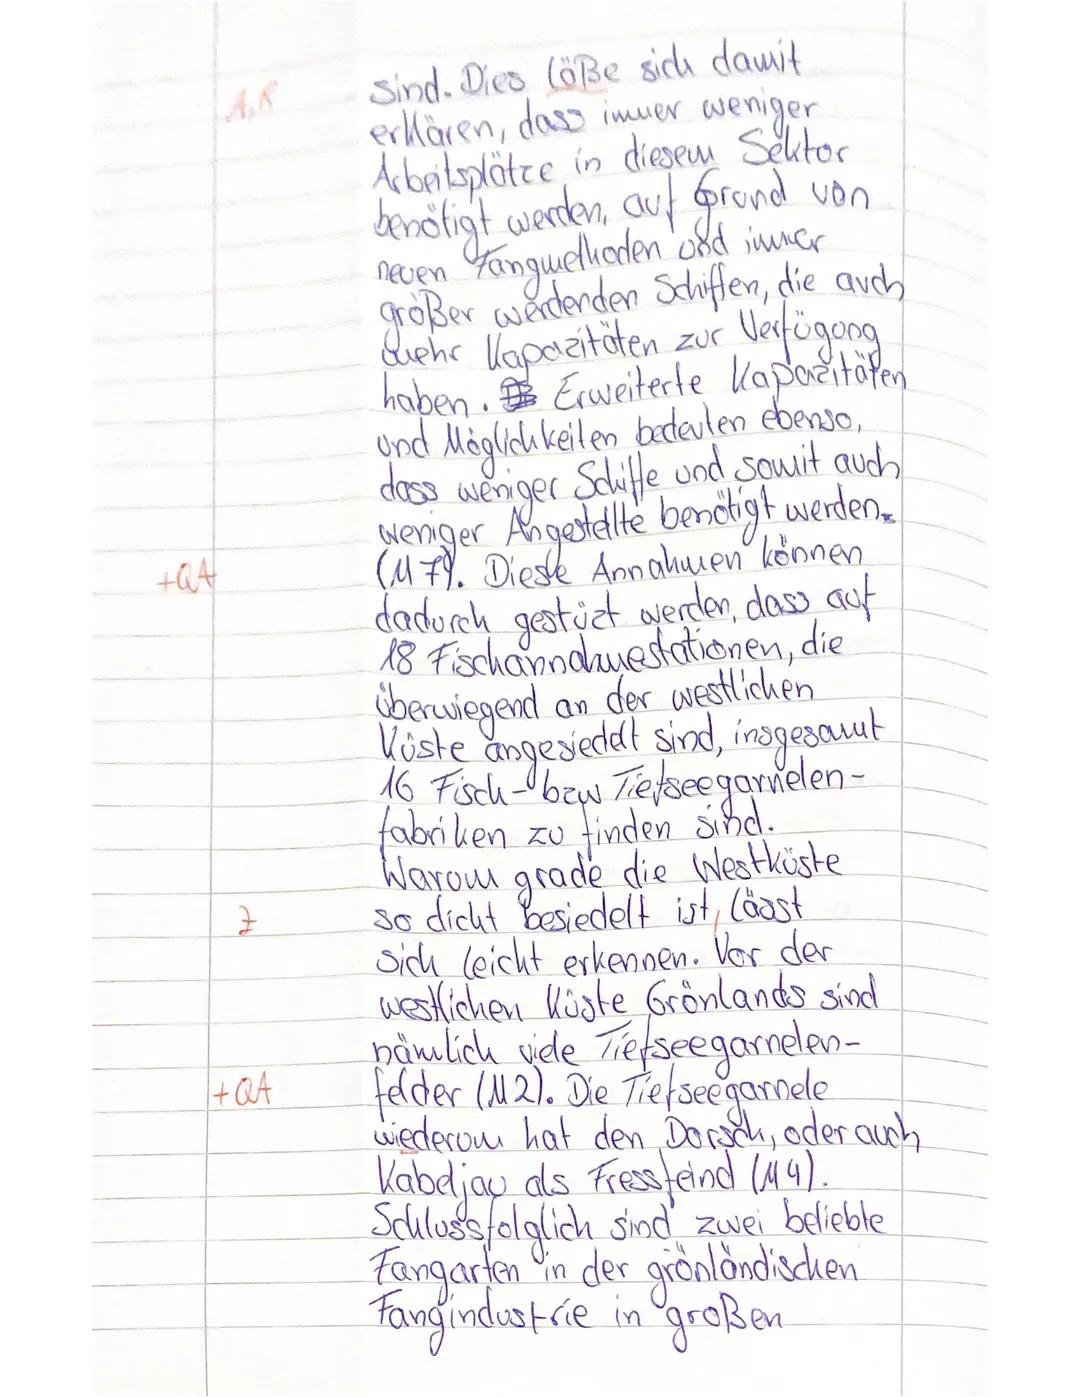 A, R
sind. Dies löße sich damit
erklären, dass immer weniger
Arbeitsplätze in diesem Sektor
benötigt werden, auf Grund von
neuen Fangmethoden und immer
größer werdenden Schiffen, die auch
mehr Kapazitäten zur Verfügung
haben. Erweiterte Kapazitäten
und Möglichkeiten bedeuten ebenso,
dass weniger Schiffe und somit auch
weniger Angestellte benötigt werden.
+QA (M7). Diese Annahmen können
dadurch gestüzt werden, dass auf
18 Fischannahmestationen, die
überwiegend an der westlichen
Küste angesiedelt sind, insgesamt
16 Fisch- bzw Tiefseegarnelen-
fabriken zu finden sind.
Warum grade die Westküste
Z so dicht besiedelt ist, lässt
sich leicht erkennen. Vor der
westlichen Küste Grönlands sind
nämlich viele Tiefseegarnelen-
+QA felder (M2). Die Tiefseegarnele
wiederum hat den Dorsch, oder auch
Kabeljau als Fressfeind (M4).
Schlussfolglich sind zwei beliebte
Fangarten in der grönländischen
Fangindustrie in großen